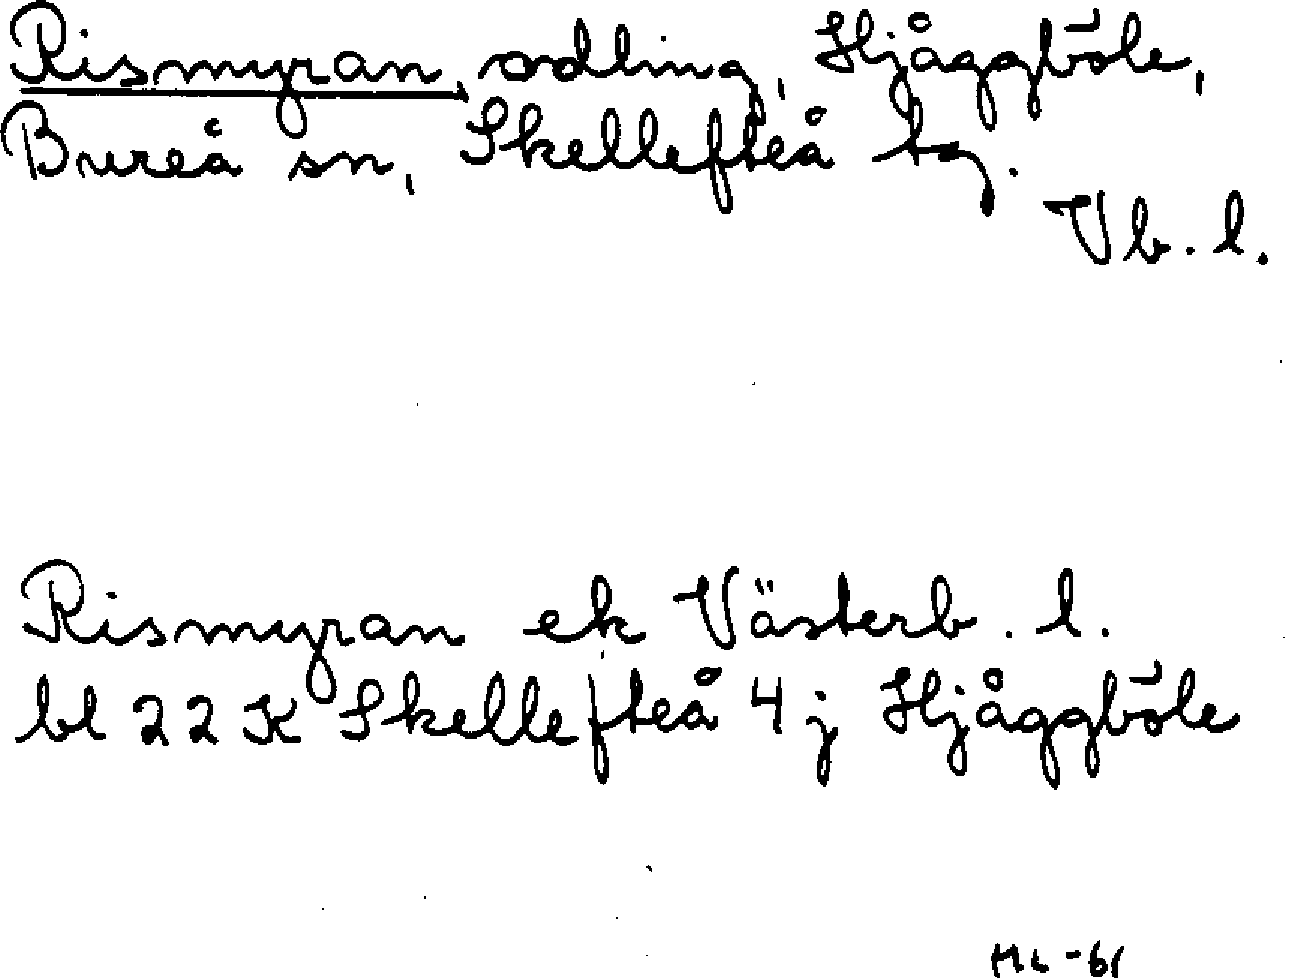 Rismyran, odling, Hjåggböle,
Bureå sn, Skellefteå tg.
Vb. l.
Rismyran ek Västerb. l.
bl 22 K Skellefteå 4 j Hjåggböle
-61